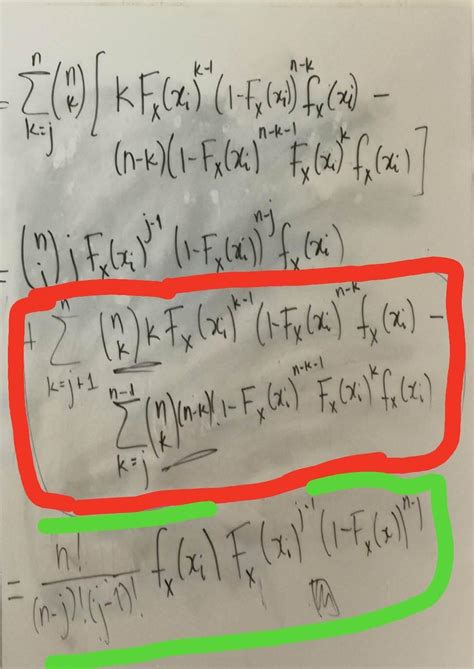 = \sum_{k=j}^{n} \binom{n}{k} [ k F_x(x_i)^{k-1} (1-F_x(x_i))^{n-k} f_x(x_i) -
(n-k)(1-F_x(x_i)^{n-k-1} F_x(x_i)^k f_x(x_i) ]
= \binom{n}{j} j F_x(x_i)^{j-1} (1-F_x(x_i))^{n-j} f_x(x_i)
+ \sum_{k=j+1}^{n} \binom{n}{k} k F_x(x_i)^{k-1} (1-F_x(x_i)^{n-k} f_x(x_i) -
\sum_{k=j}^{n-1} \binom{n}{k} (n-k)(1-F_x(x_i)^{n-k-1} F_x(x_i)^k f_x(x_i)
= \frac{n!}{(n-j)!(j-1)!} f_x(x_i) F_x(x_i)^{j-1} (1-F_x(x))^{n-j}